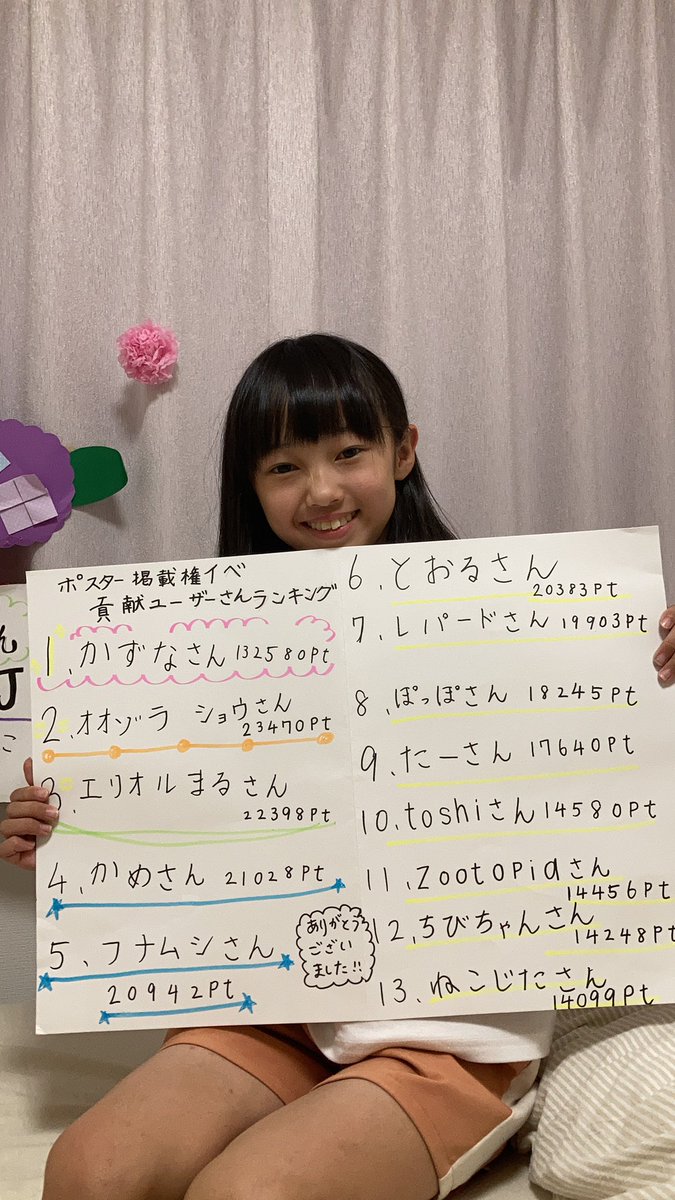 ポスター掲載権イベ
貢献ユーザーさんランキング
1、かずなさん 132580pt
2、オオゾラ ショウさん
23470Pt
3、エリオルまるさん
22398pt
4、かめさん 21028Pt
5、フナムシさん
20942pt
ありがとう
ござい
ました!!
6、とおるさん
20383pt
7、レパードさん 19903pt
8、ぽっぽさん 18245pt
9、たーさん 17640pt
10、toshiさん 14580pt
11、Zootopiaさん
14456pt
12、ちびちゃんさん
14248pt
13、ねこじたさん
14099pt
ん
こ